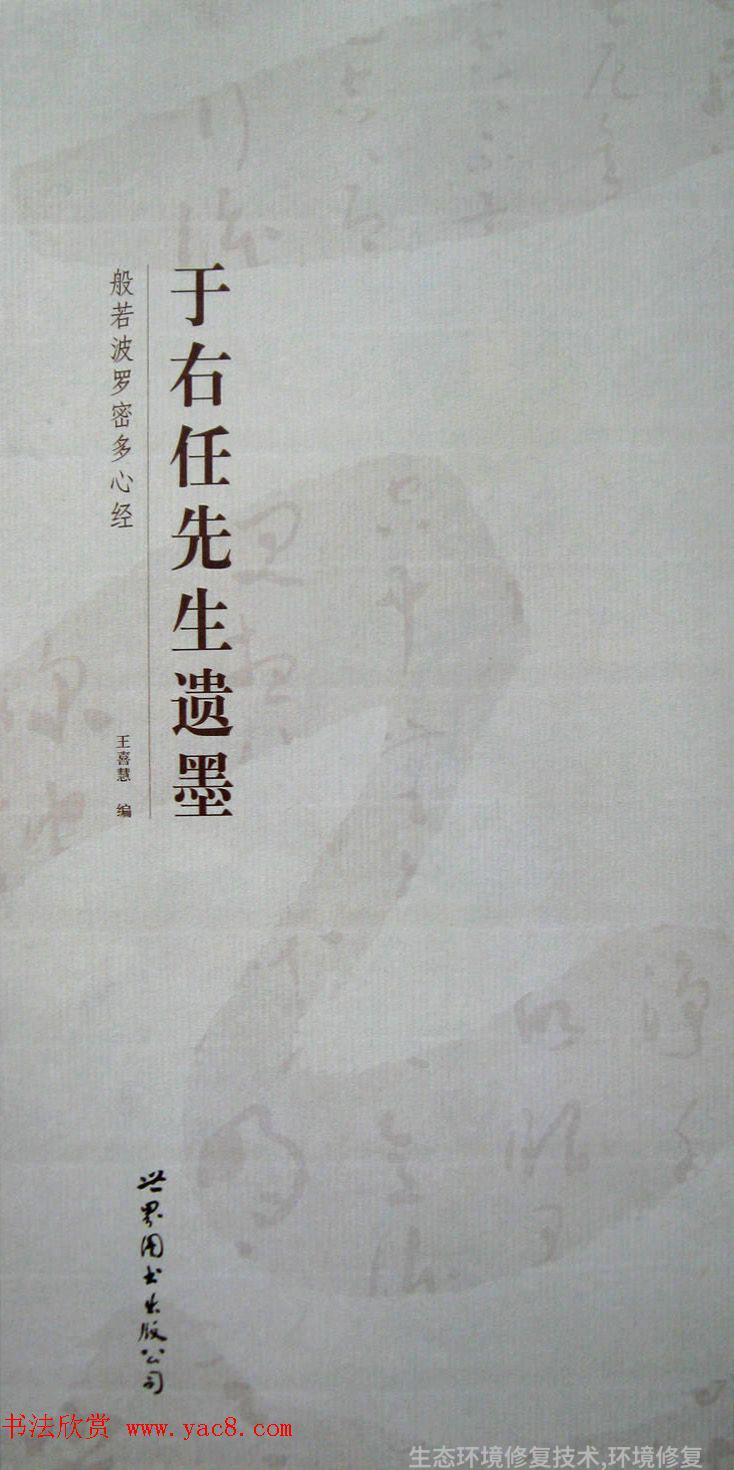 于右任先生遗墨
般若波罗密多心经
王喜慧 编
世界图书出版公司
书法欣赏 www.yac8.com
生态环境修复技术,环境修复